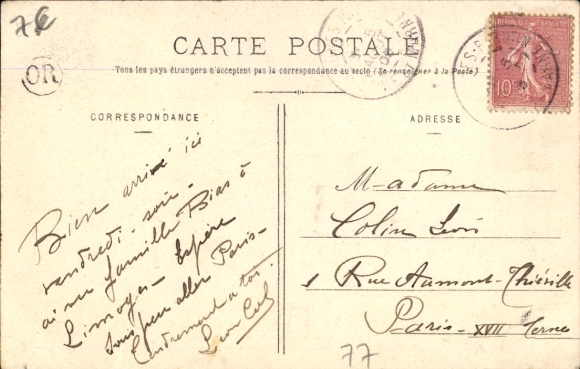 7€
CARTE POSTALE
Tous les pays étrangers n'acceptent pas la correspondance au recto (Se renseigner à la Poste)
OR
RÉPUBLIQUE FRANÇAISE
10c
CORRESPONDANCE
ADRESSE
Bien arrivé ici
vendredi soir
ai vu famille Bias à
Limoges - Espère
sous peu aller Paris -
Tendrement à toi.
Léon
Madame
Colin Léon
1 Rue Aumont-Thiéville
Paris - XVII Ternes
77